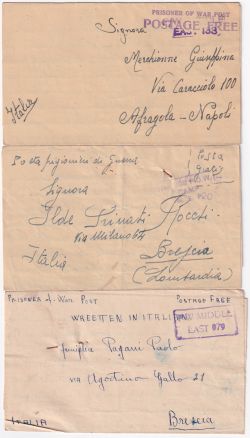 PRISONER OF WAR POST
POSTAGE FREE
Signora
EAST 133
Merchionne Giuseppina
Via Caracciolo 100
Italia
Afragola - Napoli
Posta prigionieri di Guerra
Signora
Ilde Trinati Rocchi
Via Milano
Italia
Brescia
(Lombardia)
PRISONER OF WAR POST
POSTAGE FREE
WREETTEN IN ITALI
P/W MIDDLE
EAST 079
Famiglia Pagani Paolo
VIA Agostino Gallo 21
ITALIA
Brescia